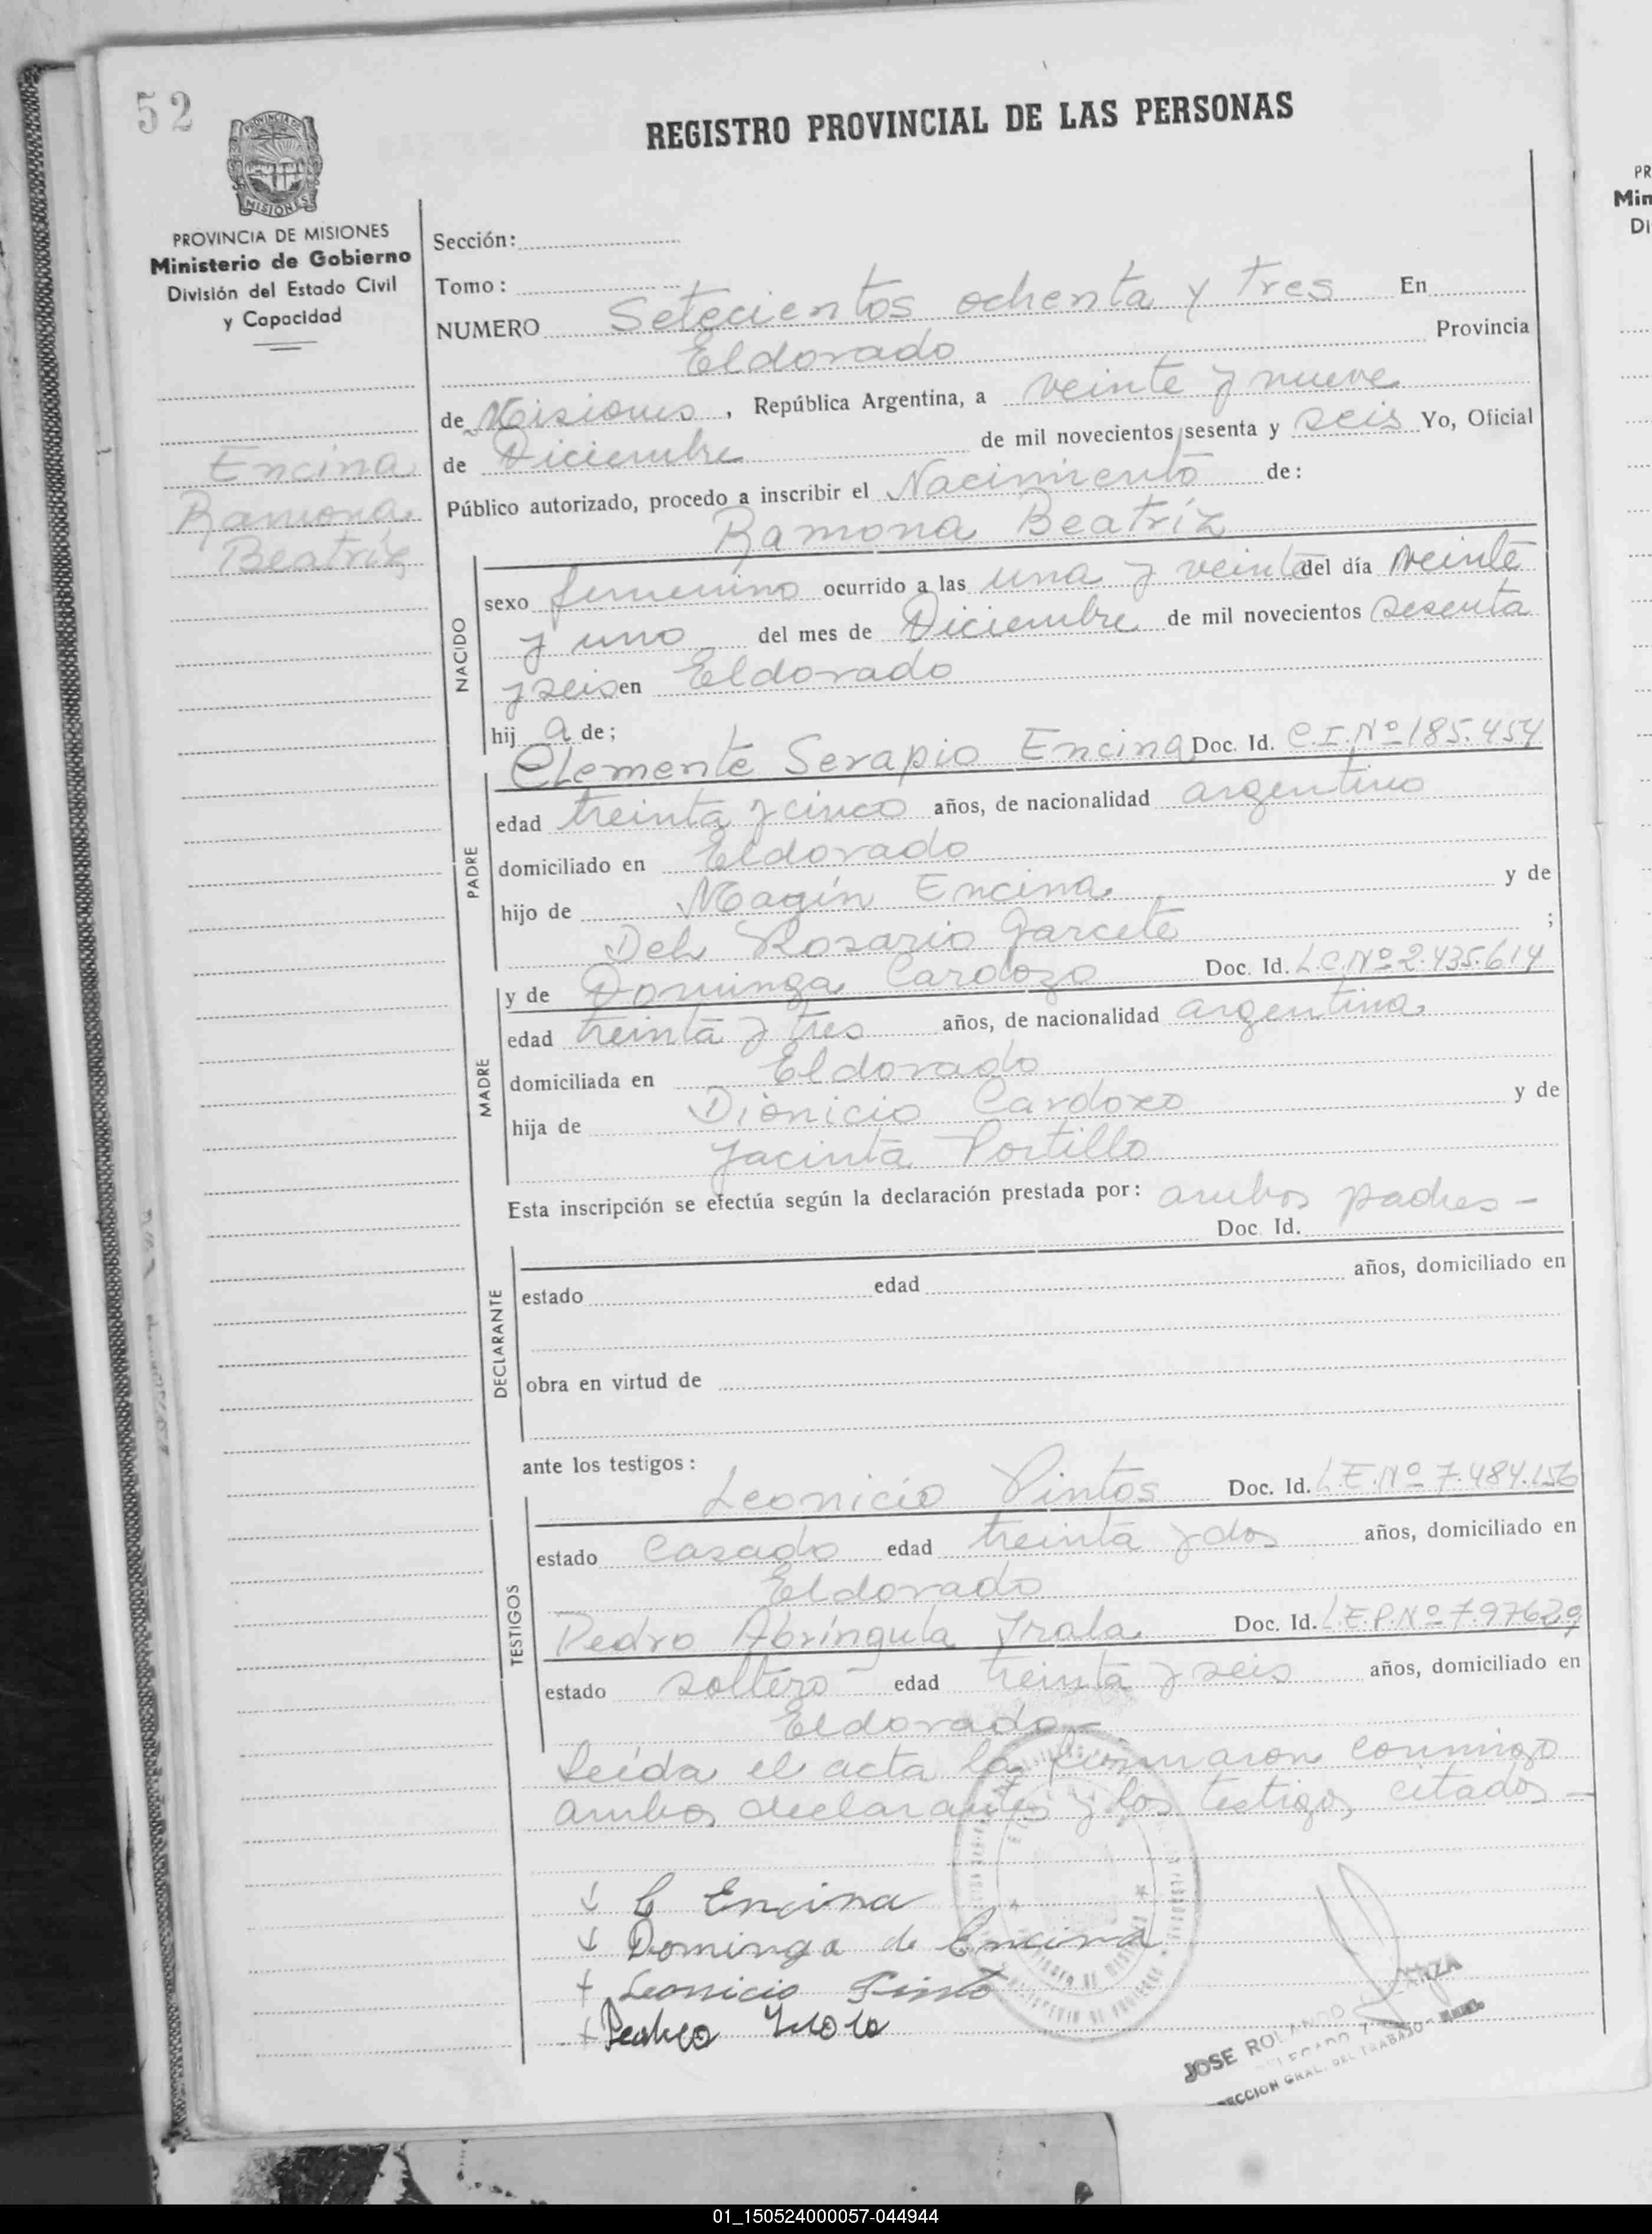 52
REGISTRO PROVINCIAL DE LAS PERSONAS
PROVINCIA DE
MISIONES
PROVINCIA DE MISIONES
Ministerio de Gobierno
División del Estado Civil
y Capacidad
Encina
Ramona
Beatríz
Sección:
Tomo:
NUMERO Setecientos ochenta y tres En
Eldorado Provincia
de Misiones, República Argentina, a veinte y nueve
de Diciembre de mil novecientos sesenta y seis Yo, Oficial
Público autorizado, procedo a inscribir el Nacimiento de:
Ramona Beatríz
NACIDO
sexo femenino ocurrido a las una y veinte del día veinte
y uno del mes de Diciembre de mil novecientos sesenta
y seis en Eldorado
hij a de;
PADRE
Clemente Serapio Encina Doc. Id. C.I.Nº 185.454
edad treinta y cinco años, de nacionalidad argentino
domiciliado en Eldorado
hijo de Magín Encina y de
Del Rosario Garcete ;
MADRE
y de Dominga Cardozo Doc. Id. L.C.Nº 2.435.614
edad treinta y tres años, de nacionalidad argentina
domiciliada en Eldorado
hija de Dionicio Cardozo y de
Jacinta Portillo
Esta inscripción se efectúa según la declaración prestada por: ambos padres -
DECLARANTE
Doc. Id.
estado edad años, domiciliado en
obra en virtud de
ante los testigos:
TESTIGOS
Leonicio Pintos Doc. Id. L.E.Nº 7.484.156
estado casado edad treinta y dos años, domiciliado en
Eldorado
Pedro Abríngula Irala Doc. Id. L.E.P.Nº 7.97629
estado soltero edad treinta y seis años, domiciliado en
Eldorado -
Leída el acta la firmaron conmigo
ambos declarantes y los testigos citados -
C Encina
Dominga de Encina
Leonicio Pinto
Pedro Irala
JOSE ROLANDO
DELEGADO
DIRECCION GRAL. DEL TRABAJO
PR
Min
Di
01_150524000057-044944